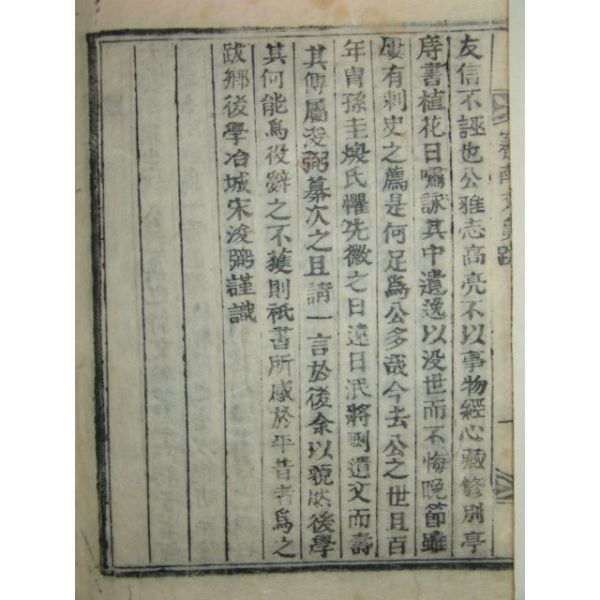 友信不誣也公雅志高亮不以事物經心藏修別亭
庤書植花日嘯詠其中遺逸以没世而不悔晩節雖
屢有剌史之薦是何足爲公多哉今去公之世且百
年胄孫圭煥氏懼先徽之日遠日泯將剞遺文而壽
其傳屬浚弼纂次之且請一言於後余以藐然後學
其何能爲役辭之不獲則祇書所感於平昔者爲之
跋鄕後學冶城宋浚弼謹識